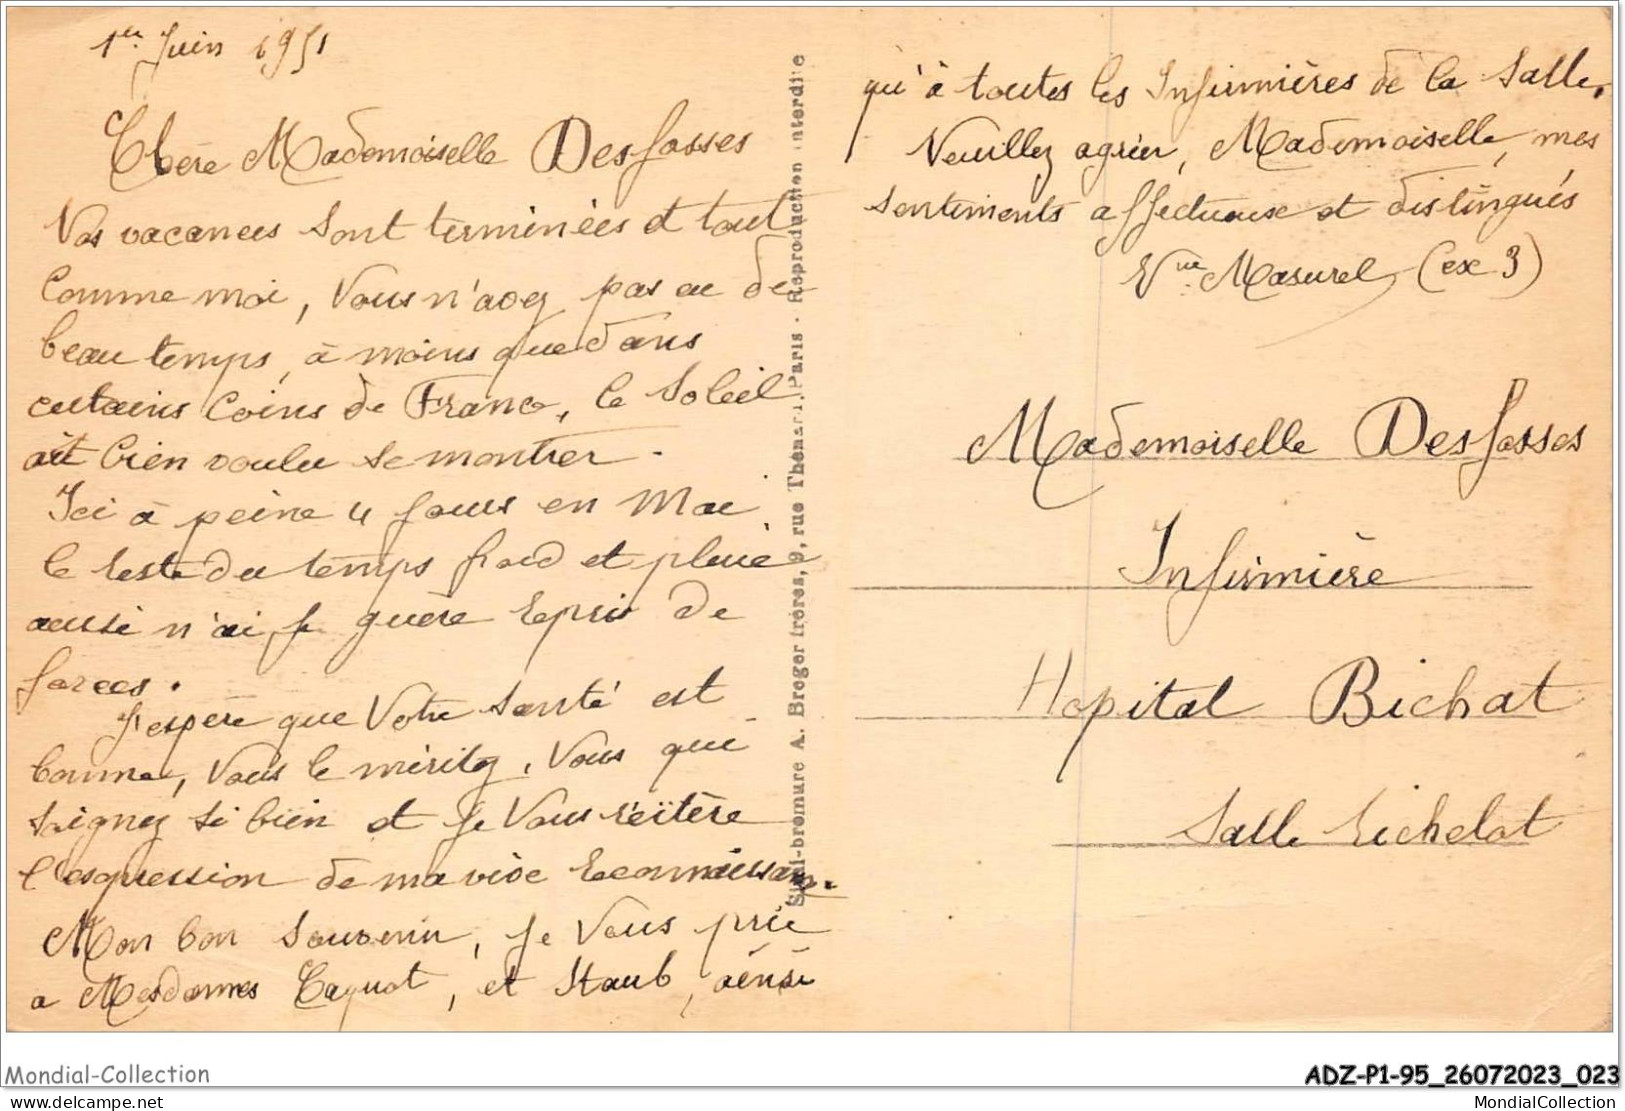 1er Juin 1951
Chère Mademoiselle Desfosses
Vos vacances sont terminées et tout
comme moi, Vous n'avez pas eu de
beau temps, à moins que dans
certains coins de France, le soleil
ait bien voulu se montrer.
Ici à peine 4 jours en Mai
le reste du temps froid et pluie
aussi n'ai je guère repris de
forces.
J'espère que Votre santé est
bonne, Vous le méritez, Vous qui
soignez si bien et je Vous réitère
l'expression de ma vive reconnaissance.
Mon bon souvenir, je Vous prie
a Mesdames Caquot, et Staub, ainsi
qu'à toutes les Infirmières de la Salle.
Veuillez agréer, Mademoiselle, mes
sentiments affectueux et distingués
Vve Masurel (ex 3)
Mademoiselle Desfosses
Infirmière
Hopital Bichat
Salle Richelot
Semi-bromure A. Breger frères, 9, rue Thénard, Paris - Reproduction interdite
Mondial-Collection
ADZ-P1-95_26072023_023
delcampe.net
MondialCollection